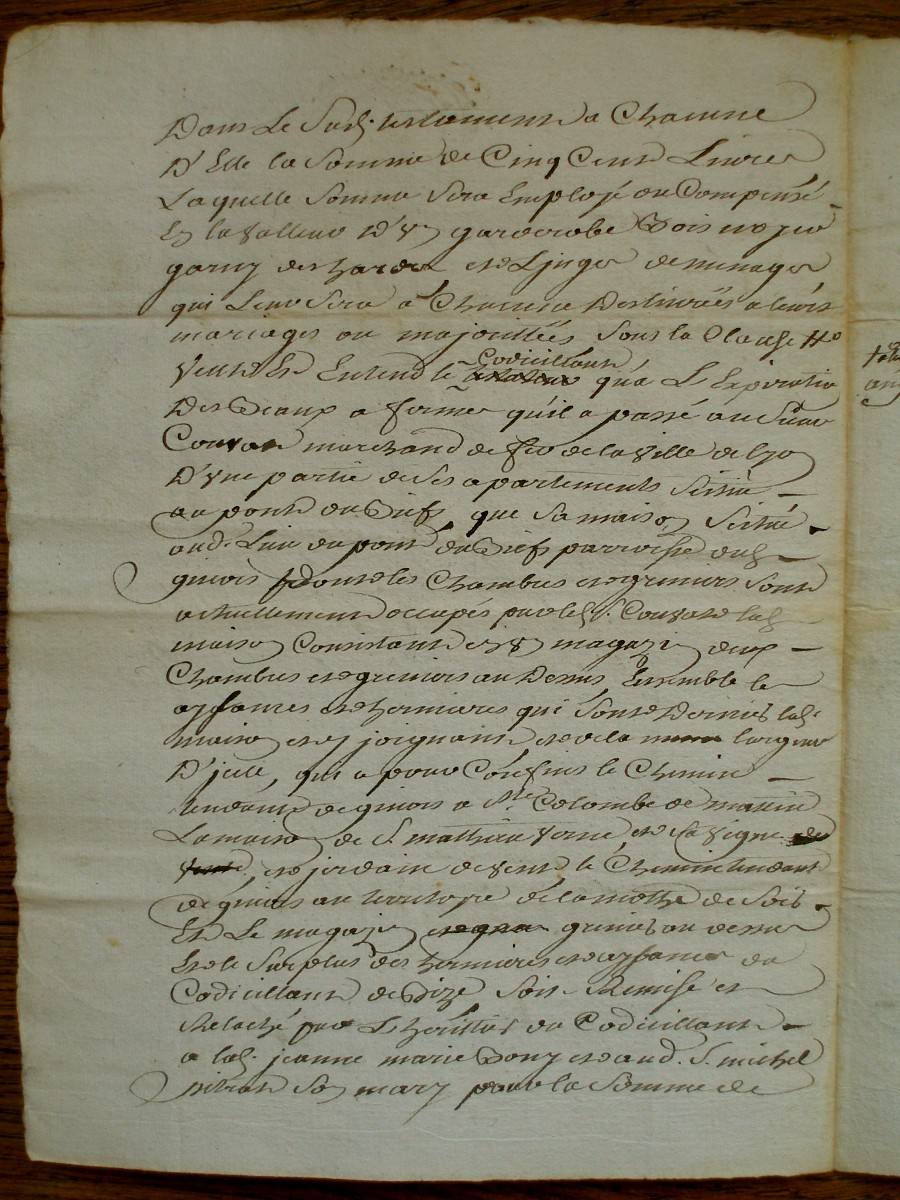 Dans Le Sudt. testament a Chacune
D'Elle la Somme de Cinq Cent Livres
Laquelle Somme Sera Employé ou Compensé
En la valleur D'un garderobe Bois noyer
garny des hardes et Linges de menages
qui Leur Sera a Chacune Deslivrées a leurs
mariages ou majorittées Sous la Clause
Veut Et Entend le Codicillant qu'a L'Expiration
Des Beaux a ferme qu'il a passé au Sieur
marchand de fer de la Ville de Lyon
D'une partie de Ses apartements Scittué
au pont du Bief, que Sa maison Scittué
aud. Lieu du pont du Bief parroisse dud.
ginois dont les Chambres et greniers Sont
actuellement occupés par led. Sr. lad.
maison Consistant en un magazin deux
Chambres et greniers au Dessus Ensemble le
ayzances et hermieres qui Sont Derrier lad.
maison et y joignant et de la largeur
D'jcelle, qui a pour Confins le Chemin
tendant de ginois a Ste. Colombe de matin
La maison de S. mathieu et Sa Vigne
et jardain de Vent le Chemin tendant
de ginois au territoire de la motte de Soir
Et Le magazin grenier au dessus
Et le Surplus des hermieres et ayzances du
Codicillant de Bize Soit Remise et
Relaché par L'heritier du Codicillant
a lad. jeanne marie Bony et aud. S. michel
Son mary pour la Somme de